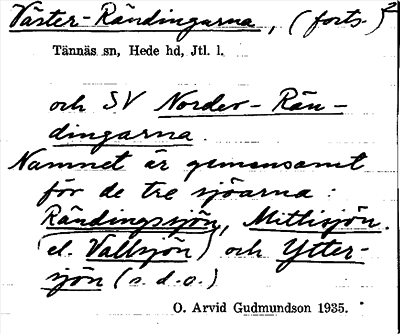 Väster-Rändingarna, (forts.) 2
Tännäs sn, Hede hd, Jtl. l.
och SV Norder-Rän-
dingarna.
Namnet är gemensamt
för de tre sjöarna:
Rändingssjön, Mittisjön.
(el. Vallsjön) och Ytter-
sjön (s.d.o.)
O. Arvid Gudmundson 1935.